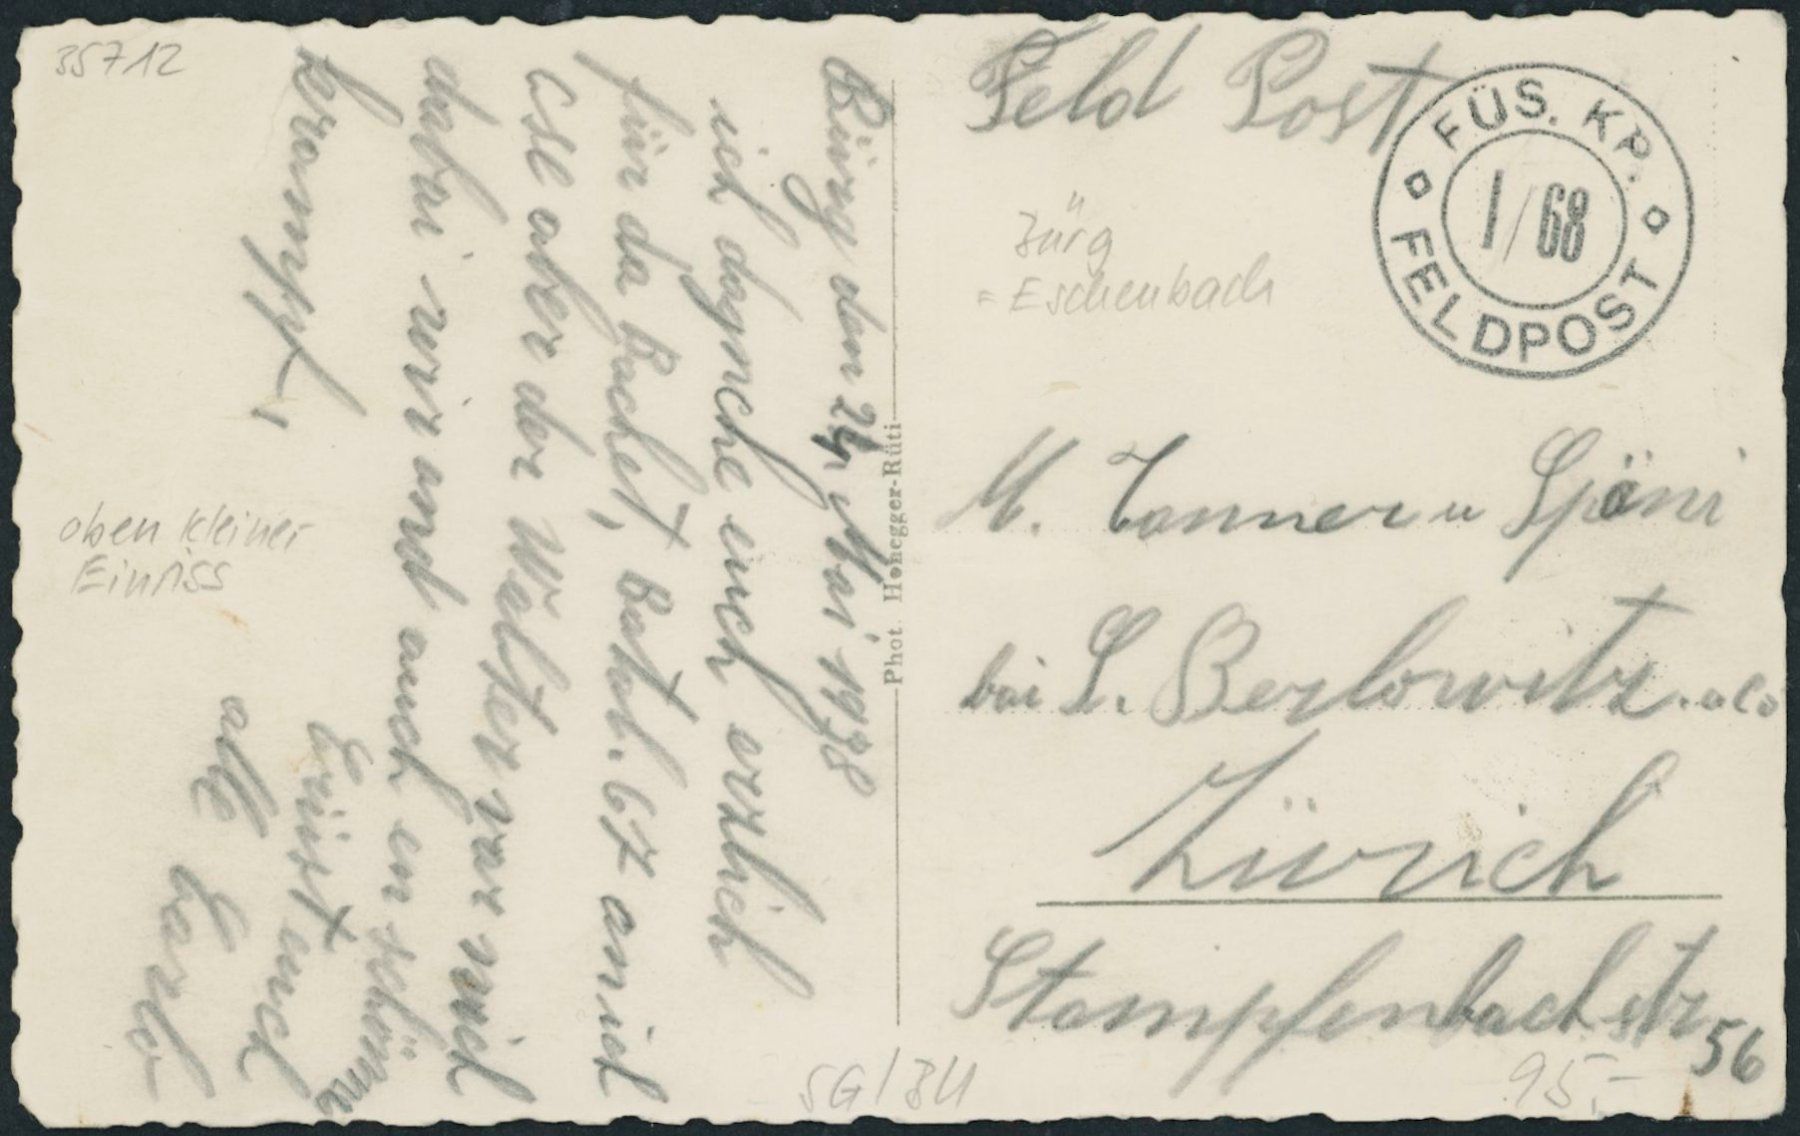 35712
Bürg den 24. Mai 1938
ich dancke euch erzlich
für da Packet, Batal. 67
ist aber der Walter
dabei wir und auch en schöne
krampf,
Grüsst euch
alle Carlo
oben kleiner
Einriss
Phot. Honegger-Rüti
Feld Post
FÜS. KP.
I/68
FELDPOST
Bürg
= Eschenbach
M. Tanner u Späni
bei L. Berlowitz. &Co
Zürich
Stampfenbachstr 56
SG/ZH
95.-